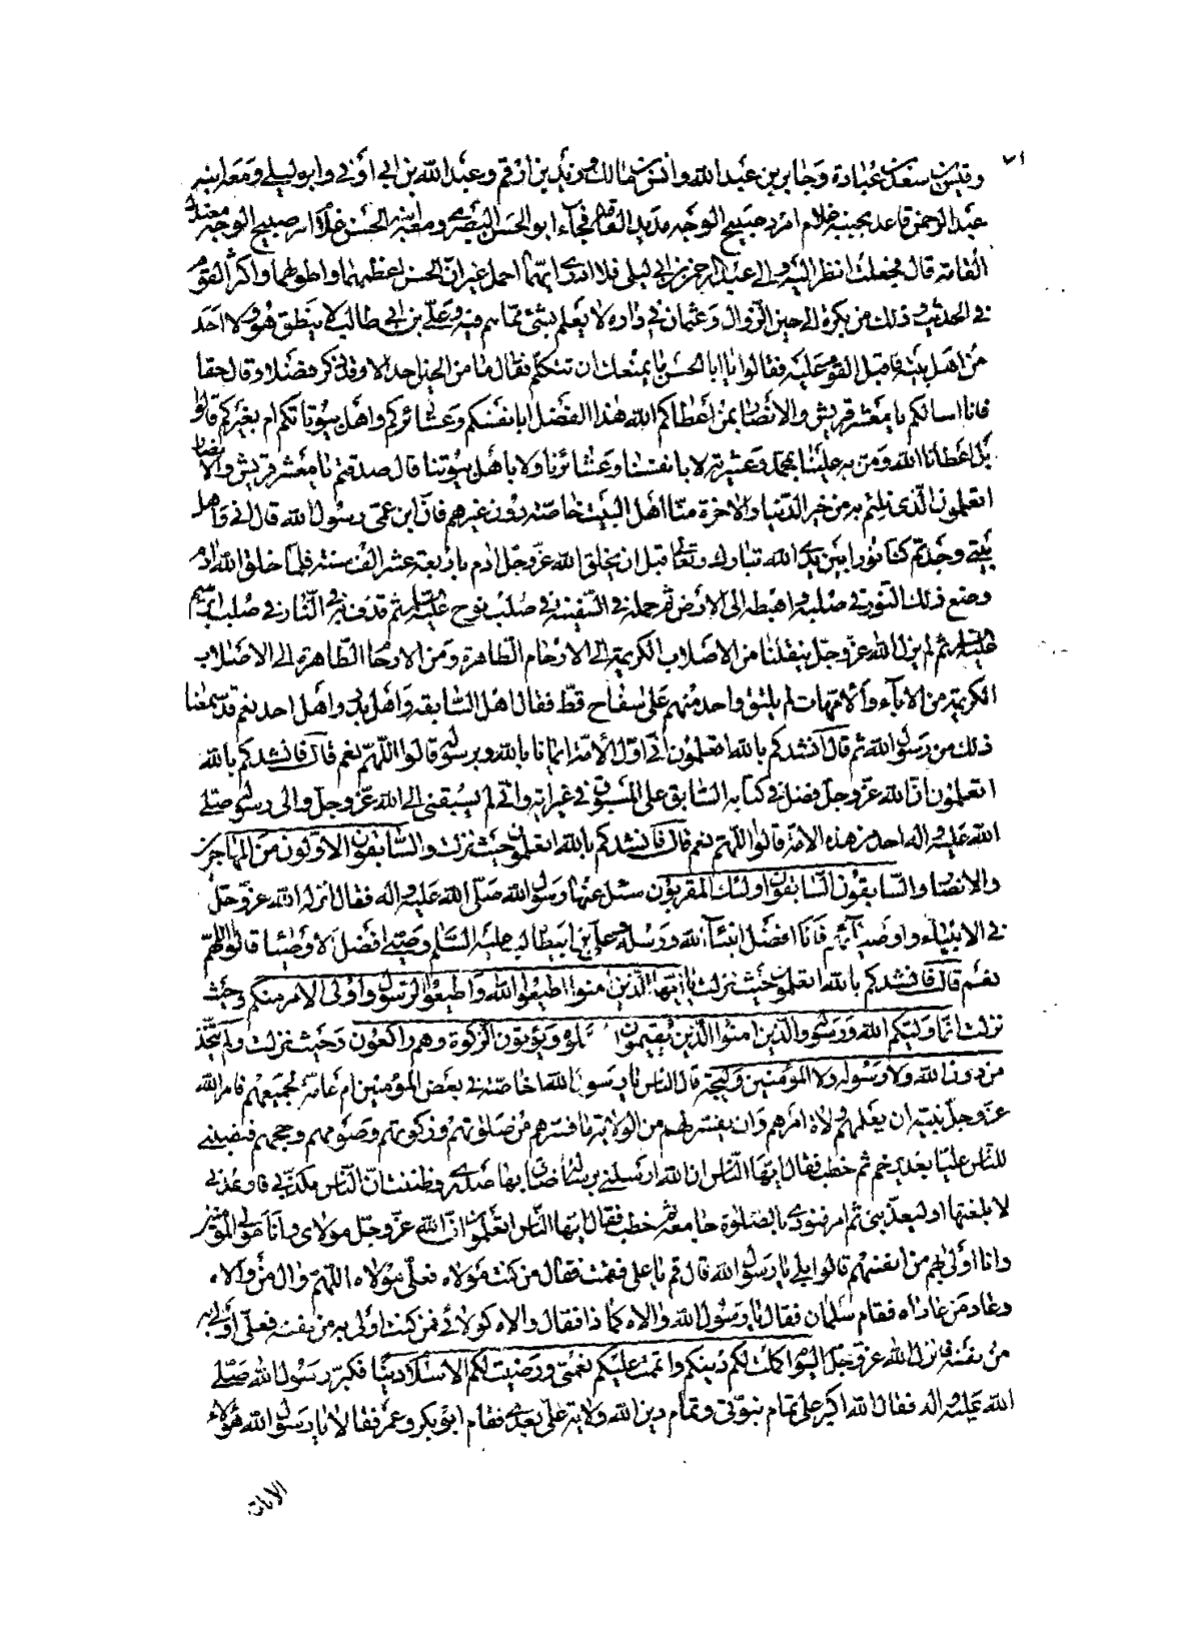 ٧١
وقيس بن سعد بن عبادة وجابر بن عبد الله وانس بن مالك وزيد بن ارقم وعبد الله بن ابي اوفى وابو ليلى ومعه ابنه
عبد الرحمن قاعد بجنبه غلام امرد صبيح الوجه مديد القامة فجاء ابو الحسن البصري ومعه ابنه الحسن غلام امرد صبيح الوجه معتدل
القامة قال فجعلت انظر اليه والى عبد الرحمن بن ابي ليلى فلا ادري ايهما اجمل غير ان الحسن اعظمهما واطولهما واكثر القوم
في الحديث وذلك من بكرة الى حين الزوال وعثمان في داره لا يعلم بشئ مما هم فيه وعلي بن ابي طالب لا ينطق هو ولا احد
من اهل بيته فاقبل القوم عليه فقالوا يا ابا الحسن ما يمنعك ان تتكلم فقال ما من الحيين احد الا وقد ذكر فضلا وقال حقا
فانا اسالكم يا معشر قريش والانصار بمن اعطاكم الله هذا الفضل ابانفسكم وعشائركم واهل بيوتاتكم ام بغيركم قالوا
بل اعطانا الله ومن به علينا بمحمد وعشيرته لا بانفسنا وعشائرنا ولا باهل بيوتنا قال صدقتم يا معشر قريش والانصار
اتعلمون الذي نلتم به من خير الدنيا والاخرة منا اهل البيت خاصة دون غيرهم فان ابن عمي رسول الله قال اني واهل
بيتي وجدتم كنا نورا بين يدي الله تبارك وتعالى قبل ان يخلق الله عز وجل ادم باربعة عشر الف سنة فلما خلق الله ادم
وضع ذلك النور في صلبه واهبطه الى الارض ثم حمله في السفينة في صلب نوح عليه السلام ثم قذف به في النار في صلب ابرهيم
عليه السلام ثم لم يزل الله عز وجل ينقلنا من الاصلاب الكريمة الى الارحام الطاهرة ومن الارحام الطاهرة الى الاصلاب
الكريمة من الاباء والامهات لم يلتق واحد منهم على سفاح قط فقال اهل السابقة واهل بدر واهل احد نعم قد سمعنا
ذلك من رسول الله ثم قال انشدكم بالله اتعلمون اني اول الامة ايمانا بالله وبرسوله قالوا اللهم نعم قال فانشدكم بالله
اتعلمون ان الله عز وجل فضل في كتابه السابق على المسبوق في غير اية واني لم يسبقني الى الله عز وجل والى رسوله صلى
الله عليه واله احد من هذه الامة قالوا اللهم نعم قال فانشدكم بالله اتعلمون حيث نزلت والسابقون الاولون من المهاجرين
والانصار والسابقون السابقون اولئك المقربون سئل عنها رسول الله صلى الله عليه واله فقال انزله الله عز وجل
في الانبياء واوصيائهم فانا افضل انبياء الله ورسله وعلي بن ابيطالب عليه السلم وصيي افضل الاوصياء قالوا اللهم
نعم قال فانشدكم بالله اتعلمون حيث نزلت يا ايها الذين امنوا اطيعوا الله واطيعوا الرسول واولى الامر منكم وحيث
نزلت انما وليكم الله ورسوله والذين امنوا الذين يقيمون الصلوة ويؤتون الزكوة وهم راكعون وحيث نزلت ولم يتخذ
من دون الله ولا رسوله ولا المؤمنين وليجة قال الناس يا رسول الله اخاصة في بعض المؤمنين ام عامة لجميعهم فامر الله
عز وجل نبيه ان يعلمهم ولاة امرهم وان يفسر لهم من الولاية ما فسر لهم من صلوتهم وزكوتهم وصومهم وحجهم فنصبني
للناس علما بغدير خم ثم خطب فقال ايها الناس ان الله ارسلني برسالة ضاق بها صدري وظننت ان الناس مكذبي فاوعدني
لابلغنها او ليعذبني ثم امر فنودي بالصلوة جامعة ثم خطب فقال ايها الناس اتعلمون ان الله عز وجل مولاى وانا مولى المؤمنين
وانا اولى بهم من انفسهم قالوا بلى يا رسول الله قال قم يا علي فقمت فقال من كنت مولاه فعلي مولاه اللهم وال من والاه
وعاد من عاداه فقام سلمان فقال يا رسول الله والاه كماذا فقال والاه كولائي فمن كنت اولى به من نفسه فعلي اولى به
من نفسه فانزل الله عز وجل اليوم اكملت لكم دينكم واتممت عليكم نعمتي ورضيت لكم الاسلام دينا فكبر رسول الله صلى
الله عليه واله فقال الله اكبر على تمام نبوتي وتمام دين الله ولاية علي بعدي فقام ابو بكر وعمر فقالا يا رسول الله هؤلاء
الايات